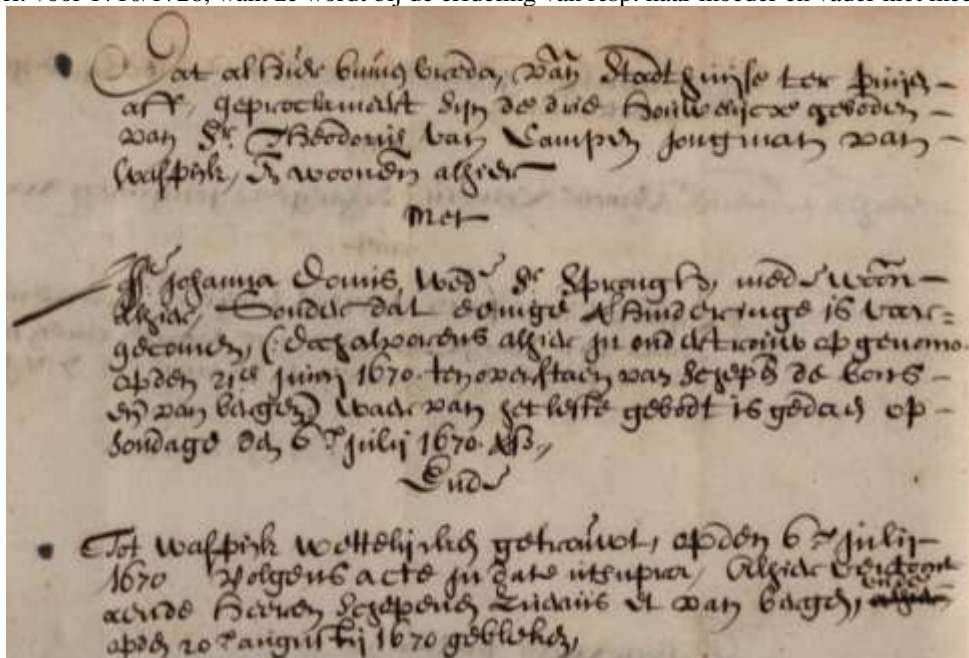 Dat alhier binnen breda, van Stadthuijse ter puije
aff, geproclameert sijn de drie houwelijcxe geboden
van Sr. Theodorus van Campen jongman van
Waspick, En woonende alhier
Met
Joffe. Johanna Domis, Wede. Sr. Sprongh, mede woon
alhier, Sonder dat eenige verhinderinge is voor:
gecomen, (: doch alvorens alhier in ondertrouw opgenomen
op den 21en Junij 1670. ten overstaen van Schepen de bons
en van bergen) waer van het leste gebodt is gedaen op
Sondage den 6en Julij 1670.
Ende
Tot Waspick wettelijcken getrouwt, op den 6en Julij
1670 Volgens acte in date utsupra, Alhier verthoont
aende Heeren Schepenen et van bergen,
op den 20en augustij 1670 gebleken,